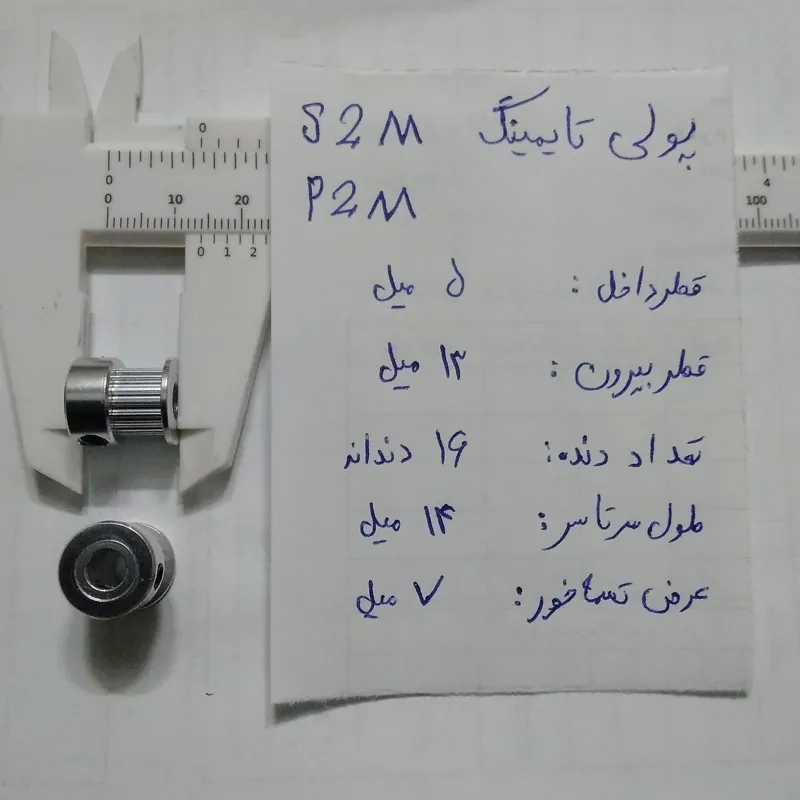 0
0
0 10 20
0 1 2
4
100
پولی تایمینگ S2M
P2M
قطر داخل : ۵ میل
قطر بیرون : ۱۳ میل
تعداد دنده : ۱۶ دندانه
طول سرتاسر : ۱۴ میل
عرض تسمه خور : ۷ میل